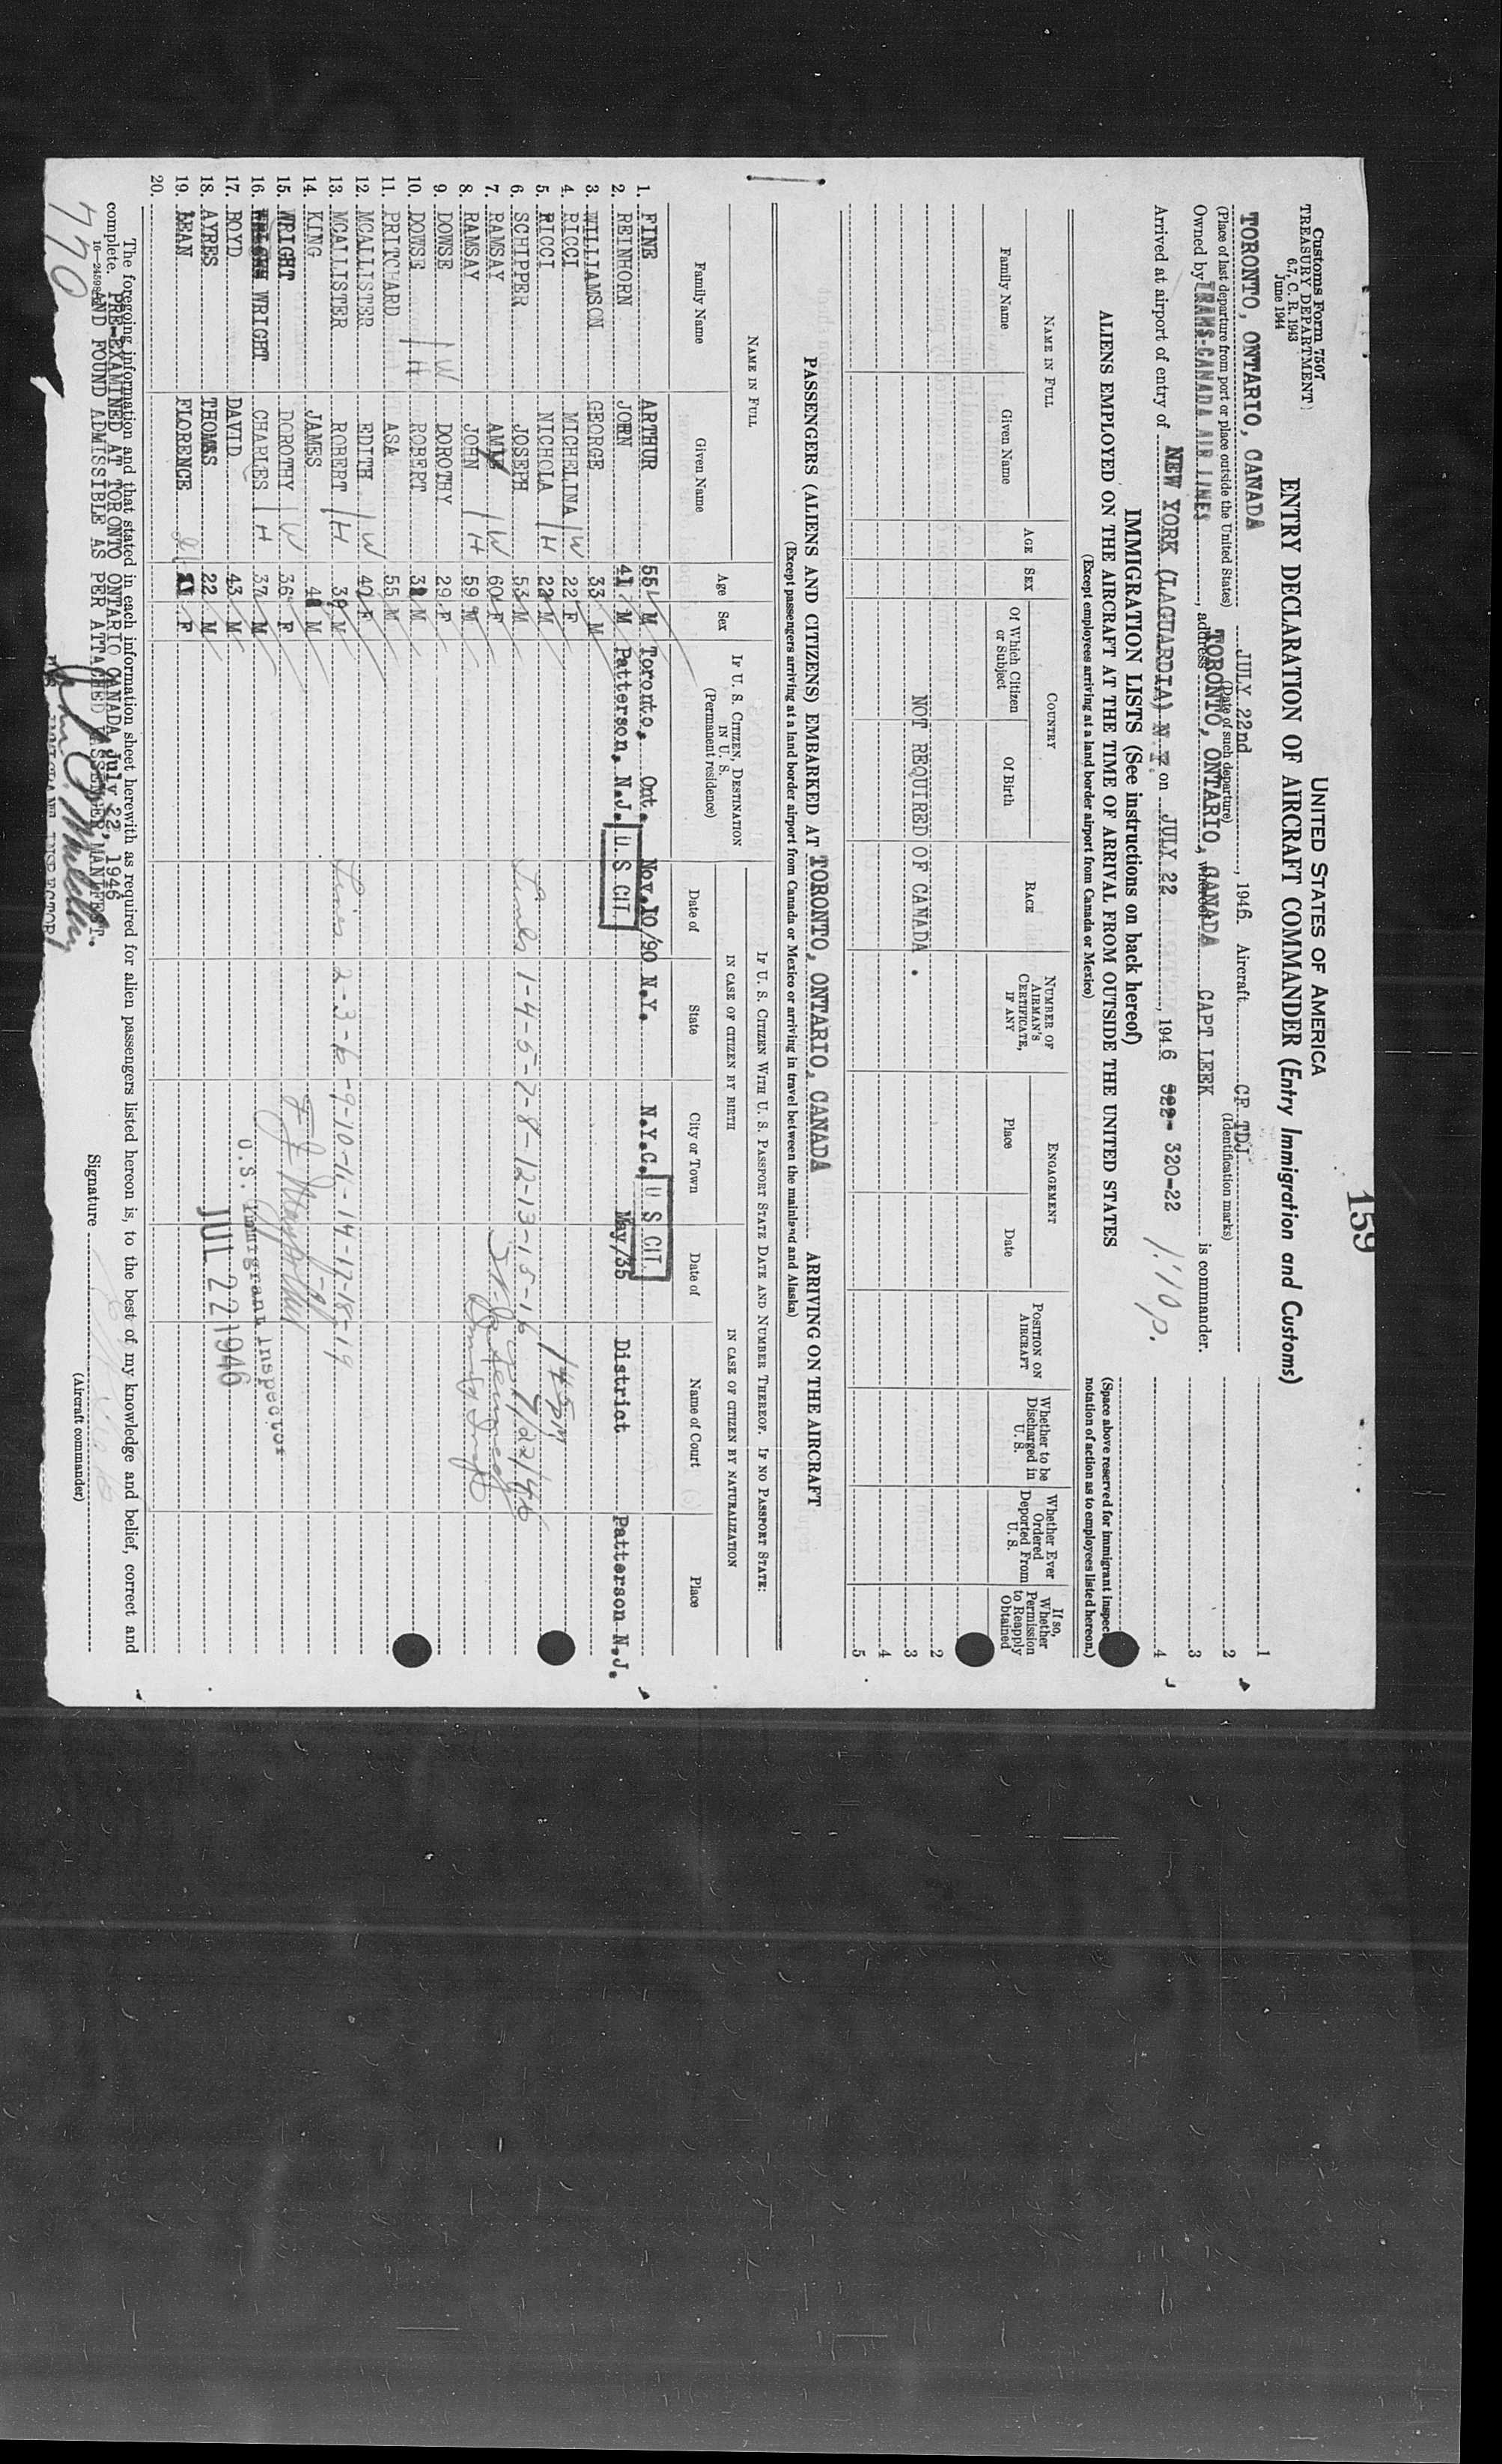 159
Customs Form 7507
TREASURY DEPARTMENT
6.7, C. R. 1943
June 1944
UNITED STATES OF AMERICA
ENTRY DECLARATION OF AIRCRAFT COMMANDER (Entry Immigration and Customs)
TORONTO, ONTARIO, CANADA JULY 22nd, 1946. Aircraft CF TDJ
(Place of last departure from port or place outside the United States) (Date of such departure) (Identification marks)
Owned by TRANS-CANADA AIR LINES, address TORONTO, ONTARIO, CANADA, whereof CAPT LEEK is commander.
Arrived at airport of entry of NEW YORK (LAGUARDIA) N Y. on JULY 22, 1946 320-22 1:10 p.
1
2
3
4
(Space above reserved for immigrant inspec
notation of action as to employees listed hereon.)
IMMIGRATION LISTS (See instructions on back hereof)
ALIENS EMPLOYED ON THE AIRCRAFT AT THE TIME OF ARRIVAL FROM OUTSIDE THE UNITED STATES
(Except employees arriving at a land border airport from Canada or Mexico)
NAME IN FULL
Family Name
Given Name
AGE
SEX
COUNTRY
Of Which Citizen or Subject
Of Birth
RACE
NUMBER OF AIRMAN'S CERTIFICATE, IF ANY
ENGAGEMENT
Place
Date
POSITION ON AIRCRAFT
Whether to be Discharged in U. S.
Whether Ever Ordered Deported From U. S.
If so, Whether Permission to Reapply Obtained
2
NOT REQUIRED OF CANADA . 3
4
5
PASSENGERS (ALIENS AND CITIZENS) EMBARKED AT TORONTO, ONTARIO, CANADA ARRIVING ON THE AIRCRAFT
(Except passengers arriving at a land border airport from Canada or Mexico or arriving in travel between the mainland and Alaska)
NAME IN FULL
Family Name
Given Name
Age
Sex
IF U. S. CITIZEN, DESTINATION IN U. S.
(Permanent residence)
IF U. S. CITIZEN WITH U. S. PASSPORT STATE DATE AND NUMBER THEREOF. IF NO PASSPORT STATE:
IN CASE OF CITIZEN BY BIRTH
IN CASE OF CITIZEN BY NATURALIZATION
Date of
State
City or Town
Date of
Name of Court
Place
1. FINE ARTHUR 55 M Toronto, Ont. Nov.10/90 N.Y. N.Y.C. U S CIT.
2. REINHORN JORN 41 M Patterson, N.J. U. S CIT. May/35 District Patterson N.J.
3. WILLIAMSON GEORGE 33 M
4. RICCI MICHELINA W 22 F
5. RICCI NICHOLA H 22 M
6. SCHIPPER JOSEPH 53 M Lines 1-4-5-7-8-12-13-15-16 7/22/46
7. RAMSAY W 60 F
8. RAMSAY JOHN H 59 M
9. DOWSE W DOROTHY 29 F
10. DOWSE H ROBERT M
11. PRITCHARD ASA 55 M
12. MCALLISTER EDITH W 40 F
13. MCALLISTER ROBERT H 39 M Lines 2-3-6-9-10-11-14-17-18-19
14. KING JAMES M
15. WRIGHT DOROTHY W 36 F
16. WRIGHT CHARLES H 37 M U.S. Immigrant Inspector
17. BOYD DAVID 43 M
18. AYRES THOMAS 22 M JUL 22 1946
19. LEAN FLORENCE 21 F
20.
The foregoing information and that stated in each information sheet herewith as required for alien passengers listed hereon is, to the best of my knowledge and belief, correct and
complete.
PRE-EXAMINED AT TORONTO ONTARIO CANADA July 22, 1946
AND FOUND ADMISSIBLE AS PER ATTACHED PASSENGER MANIFEST.
INSPECTOR
Signature
(Aircraft commander)
770